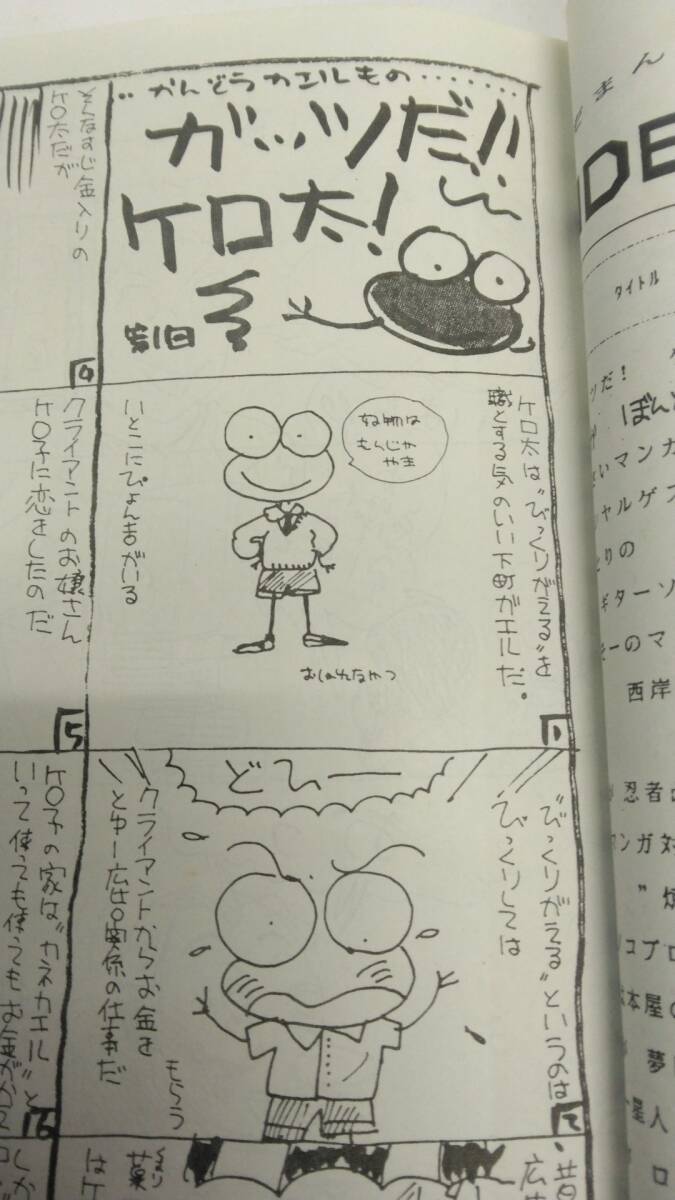 "かんどうカエルもの……
ガッツだ!!
ケロ太!
第1回
ケロ太は"びっくりがえる"を
職とする気のいい下町ガエルだ。
好物は
もんじゃ
やき
いとこにぴょん吉がいる
おしゃれなやつ
1
どひー
"びっくりがえる"というのは
びっくりしては
クライアントからお金を
もらう
とゆー広告関係の仕事だ
2
そんなすじ金入りの
ケロ太だが
4
クライアントのお嬢さん
ケロ子に恋をしたのだ
5
ケロ子の家は"カネカエル"と
いって使っても使ってもお金が
6
タイトル
ツだ!
ぼん
さいマンガ
シャルゲ
とりの
ギターソ
そーのマ
西岸
忍者
マンガ対
コプロ
本屋の
夢
屋人